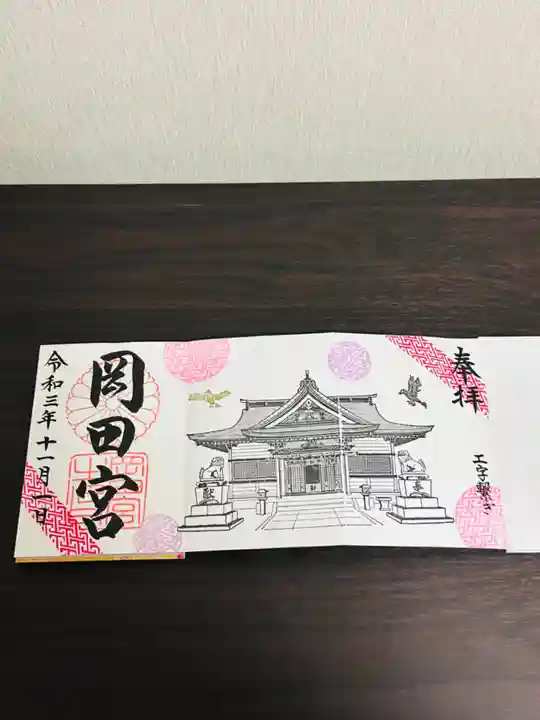 奉拝
工字繋ぎ
岡田宮
令和三年十一月一日